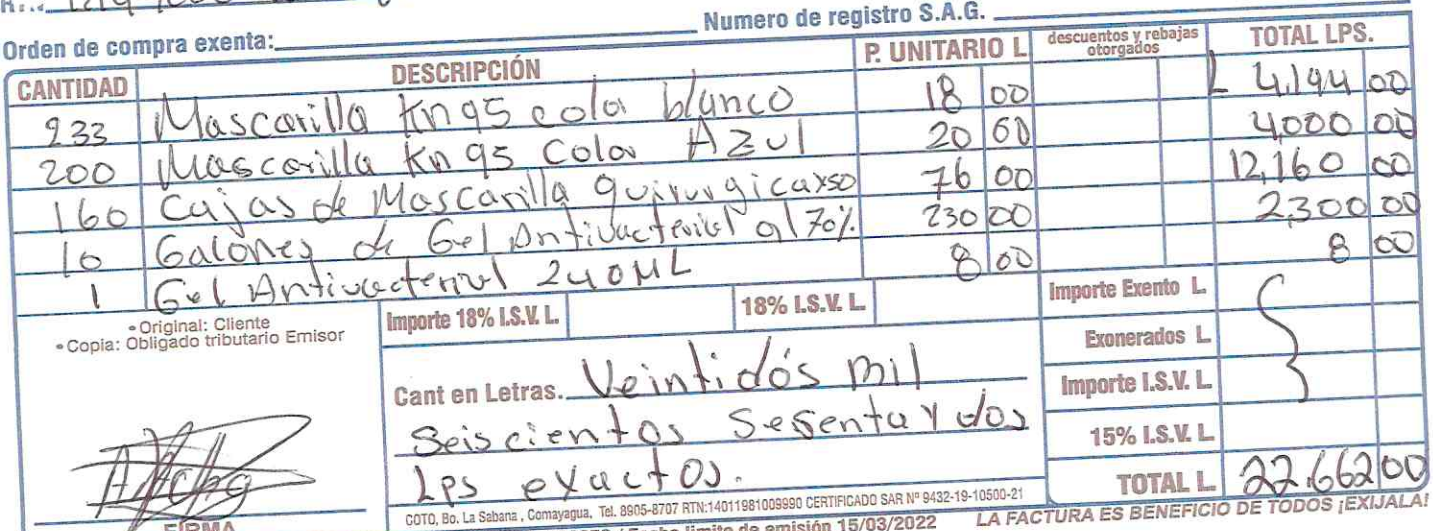 Numero de registro S.A.G.
Orden de compra exenta:
CANTIDAD DESCRIPCIÓN P. UNITARIO L descuentos y rebajas otorgados TOTAL LPS.
233 Mascarilla Kn95 color blanco 18 00 L 4,194 00
200 Mascarilla Kn95 Color Azul 20 00 4,000 00
160 Cajas de Mascarilla quirurgicax50 76 00 12,160 00
10 Galones de Gel Antivacterial al 70% 230 00 2,300 00
1 Gel Antivacterival 240ML 8 00 8 00
• Original: Cliente
• Copia: Obligado tributario Emisor
Importe 18% I.S.V. L. 18% I.S.V. L. Importe Exento L.
Exonerados L.
Cant en Letras. Veintidós mil Importe I.S.V. L.
Seiscientos Sesenta y dos 15% I.S.V. L.
Lps exactos. TOTAL L. 22,662 00
COTO, Bo. La Sabana, Comayagua, Tel. 8905-8707 RTN:14011981009990 CERTIFICADO SAR Nº 9432-19-10500-21
FIRMA
límite de emisión 15/03/2022 LA FACTURA ES BENEFICIO DE TODOS ¡EXIJALA!